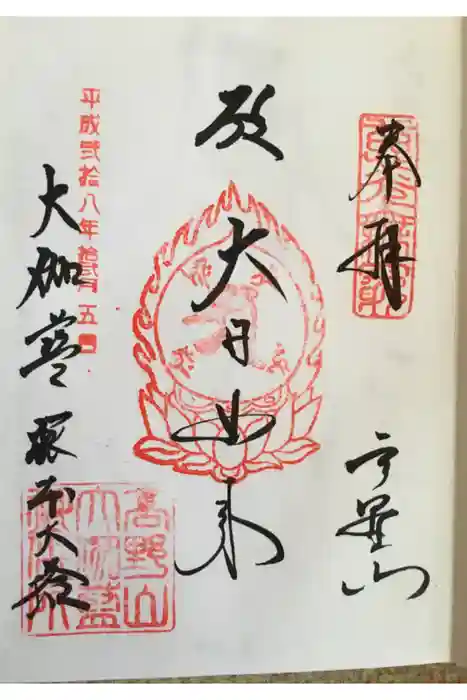 奉拝
高野山
大日如来
平成弐拾八年 五日
大伽藍 根本大塔
高野山
大伽藍